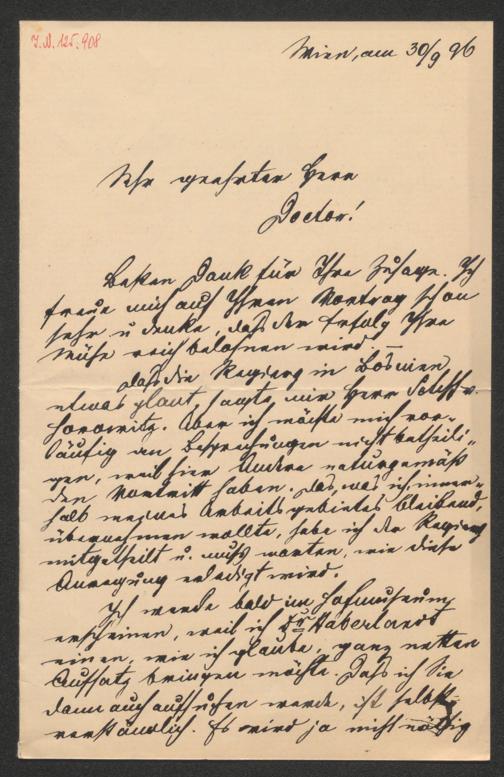 I.N. 125.908
Wien, am 30/9 96
Sehr geehrter Herr
Doctor!
Besten Dank für Ihre Zusage. Ich
freue mich auf Ihren Vortrag schon
sehr u denke, daß der Erfolg Ihre
Mühe reich belohnen wird. –
Daß die Regierg in Bosnien
etwas plant sagte mir Herr v.
Horowitz. Aber ich möchte mich vor-
läufig an Besprechungen nicht betheili-
gen, weil hier Andere naturgemäß
den Vortritt haben. Das, was ich inner-
halb meines Arbeitsgebietes bleibend,
übernehmen wollte, habe ich der Regierg
mitgetheilt u. muß warten, wie diese
Anregung erledigt wird.
Ich werde bald im Hofmuseum
erscheinen, weil ich Dr Haberlandt
einen, wie ich glaube, ganz netten
Aufsatz bringen möchte. Daß ich Sie
dann auch aufsuchen werde, ist selbst-
verständlich. Es wird ja nicht nöthig